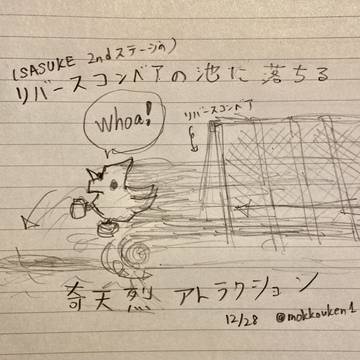 (SASUKE 2ndステージの)
リバースコンベアの池に落ちる
Whoa!
リバースコンベア
奇天烈 アトラクション
12/28 @mokkouken1